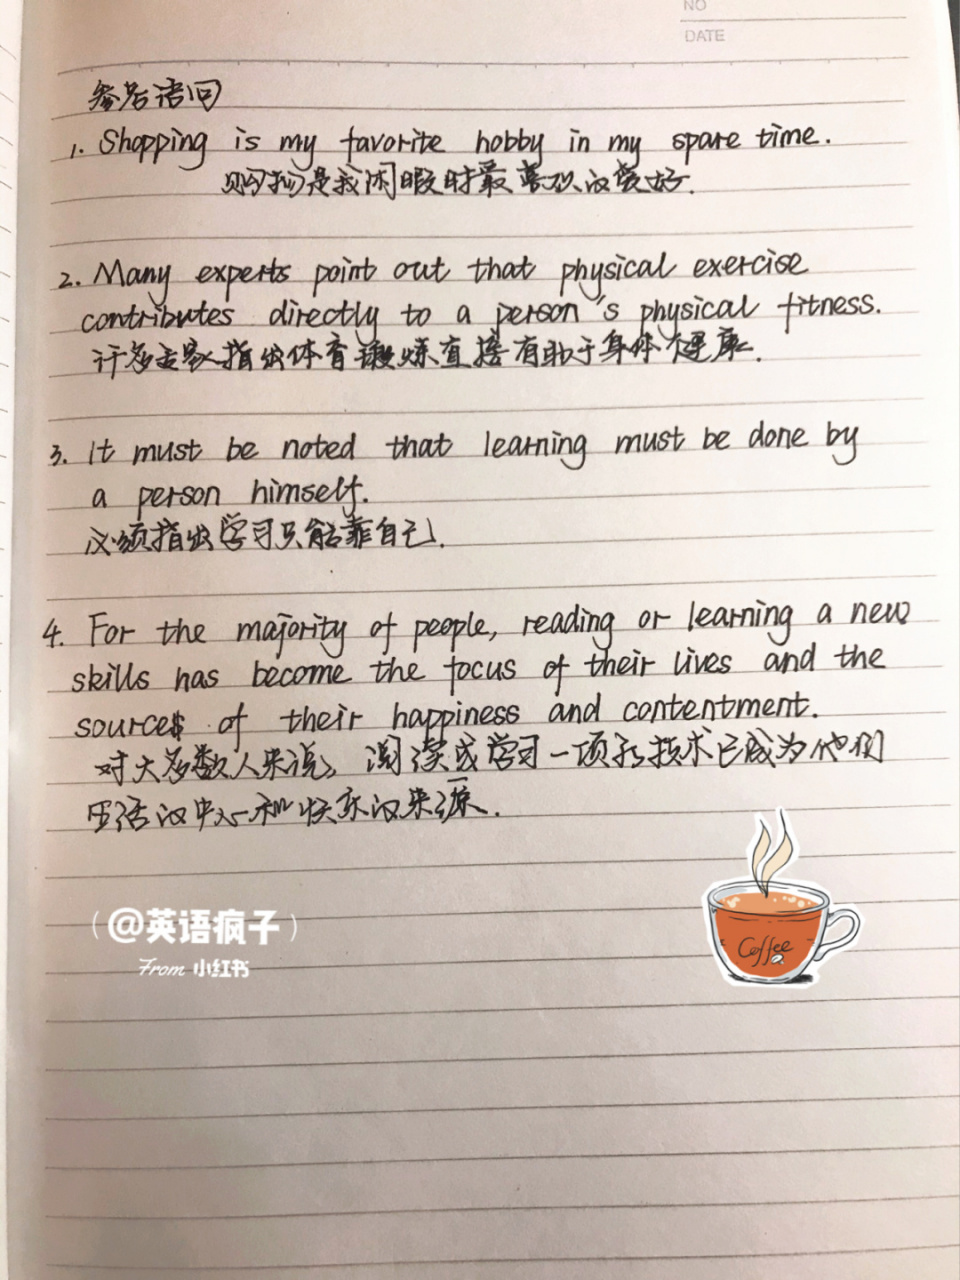 NO
DATE
参考语句
1. Shopping is my favorite hobby in my spare time.
购物是我闲暇时最喜欢的爱好.
2. Many experts point out that physical exercise
contributes directly to a person's physical fitness.
许多专家指出体育锻炼直接有助于身体健康.
3. It must be noted that learning must be done by
a person himself.
必须指出学习只能靠自己.
4. For the majority of people, reading or learning a new
skills has become the focus of their lives and the
sources of their happiness and contentment.
对大多数人来说, 阅读或学习一项新技术已成为他们
生活的中心和快乐的来源.
(@英语疯子)
From 小红书
Coffee